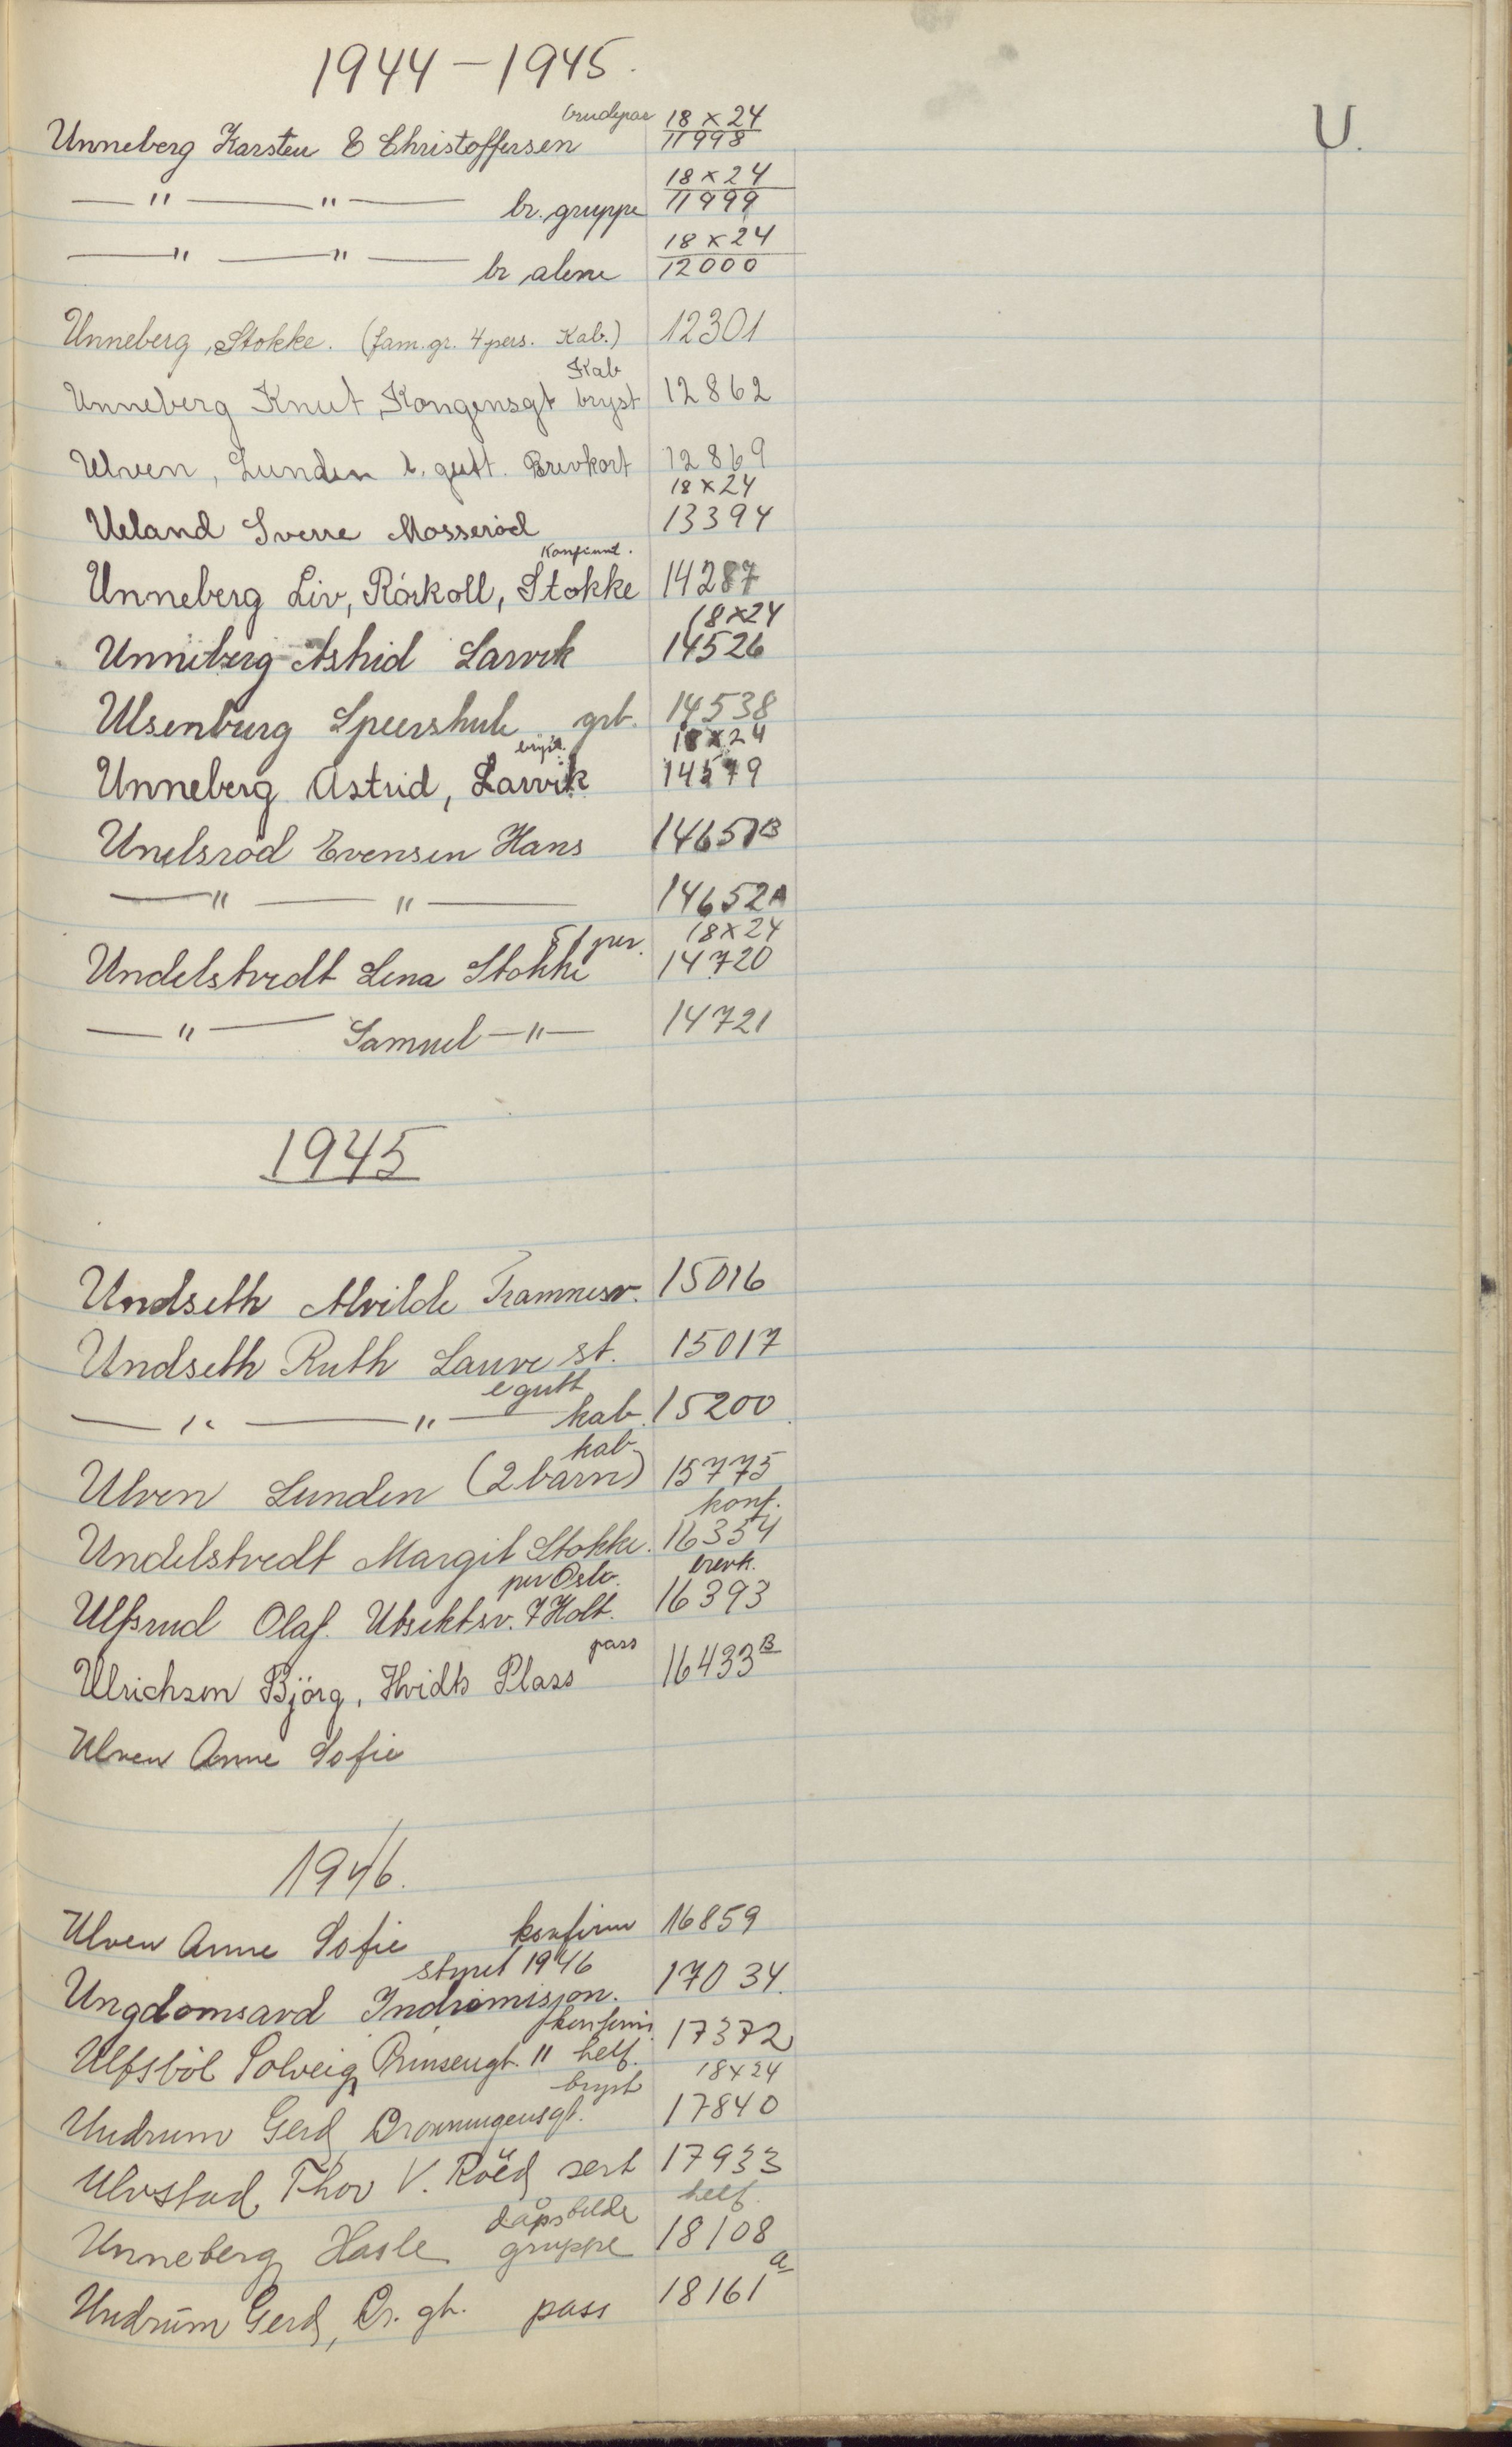 1944 – 1945.
U.
brudepar 18 x 24
Unneberg Karsten & Christoffersen 11998
18 x 24
— " — " — br. gruppe 11999
18 x 24
— " — " — br alene 12000
Unneberg, Stokke. (fam. gr. 4 pers. Kab.) 12301
Kab
Unneberg Knut, Kongensgt bryst 12862
Ulven, Lunden l. gutt. Brevkort 12869
18 x 24
Ueland Sverre Mosserød 13394
Konfirmt.
Unneberg Liv, Rörkoll, Stokke 14287
18 x 24
Unneberg Astrid Larvik 14526
Ulsenburg grt. 14538
bryst. 18 x 24
Unneberg Astrid, Larvik 14579
Unelsrød Evensen Hans 14651B
— " — " — 14652A
18 x 24
Undelstvedt Lena Stokke 14720
— " — Samuel — " — 14721
1945
Undseth Alvilde Framnesv. 15016
Undseth Ruth Lauve st. 15017
e gutt
— " — " — kab. 15200
kab.
Ulven Lunden (2 barn) 15775
konf.
Undelstvedt Margit Stokke. 16354
per Oslo. brevk.
Ulfsrud Olaf. Utsiktsv. 7 Holt. 16393
pass
Ulrichsen Björg, Hvidts Plass 16433B
Ulven Anne Sofie
1946.
Ulven Anne Sofie konfirm 16859
styret 1946
Ungdomsavd Indremisjon. 17034.
konfirm.
Ulfsböl Solveig, Prinsengt. 11 helf. 17372
bryst 18 x 24
Undrum Gerd, Dronningensgt. 17840
Ulvstad, Thor V. Röed sert 17933
dåpsbilde helf.
Unneberg, Hasle gruppe 18108
Undrum Gerd, Dr. gt. pass 18161a